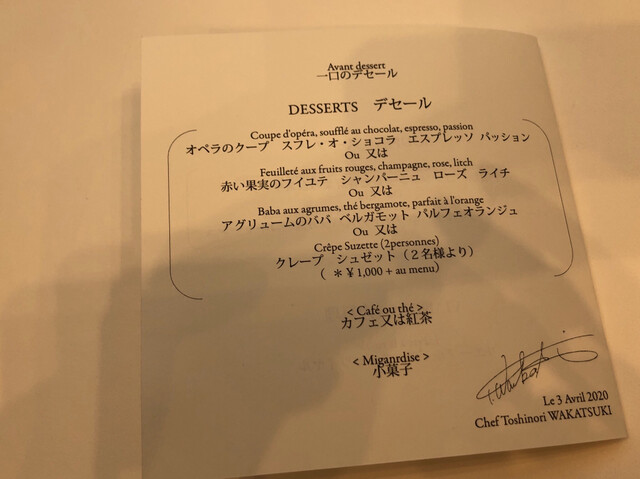 Avant dessert
一口のデセール
DESSERTS デセール
Coupe d'opéra, soufflé au chocolat, espresso, passion
オペラのクープ スフレ・オ・ショコラ エスプレッソ パッション
Ou 又は
Feuilleté aux fruits rouges, champagne, rose, litch
赤い果実のフイユテ シャンパーニュ ローズ ライチ
Ou 又は
Baba aux agrumes, thé bergamote, parfait à l'orange
アグリュームのババ ベルガモット パルフェオランジュ
Ou 又は
Crêpe Suzette (2personnes)
クレープ シュゼット（２名様より）
( ＊¥1,000 + au menu)
< Café ou thé >
カフェ又は紅茶
< Miganrdise >
小菓子
Le 3 Avril 2020
Chef Toshinori WAKATSUKI